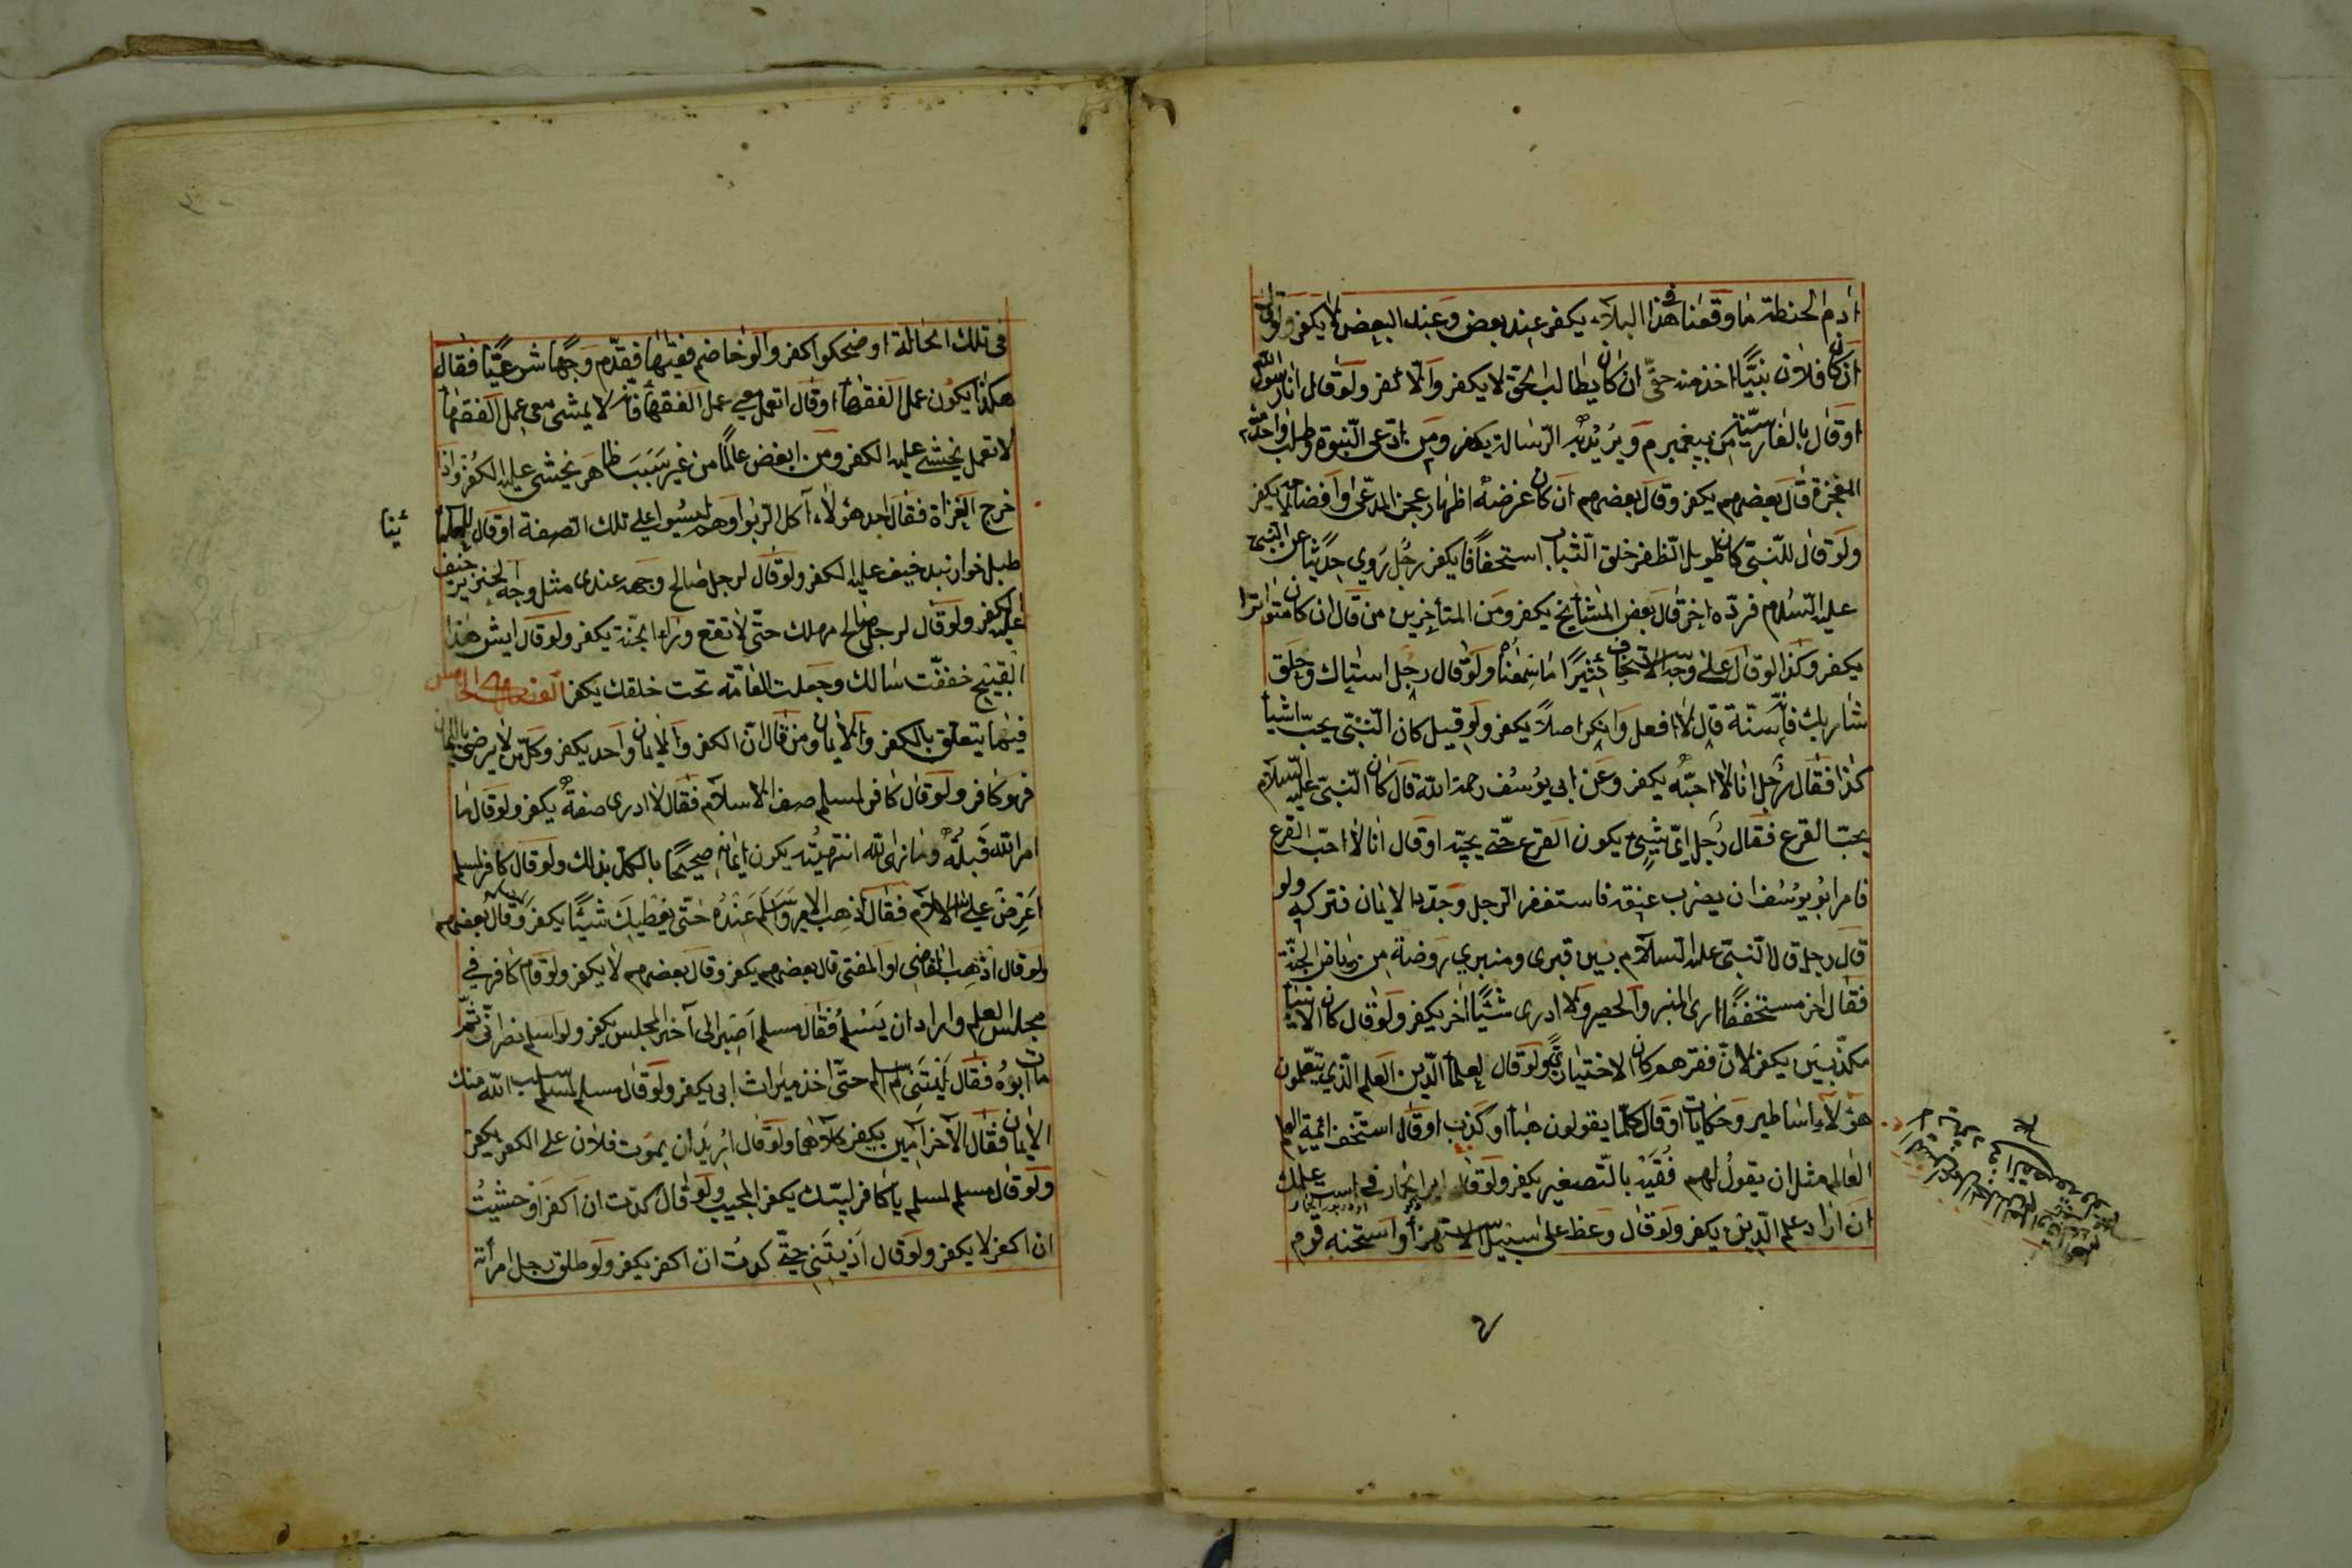 آدم الحنطة ما وقعنا في هذا البلاء يكفر عند بعض وعند البعض لا يكفر ولو قال
ان كان فلان نبيًّا اخذ منه حقّى ان كان يطالب الحق لا يكفر والّا كفر ولو قال انا رسول الله
او قال بالفارسيّة من پيغمبرم ويريد به الرسالة يكفر ومن ادّعى النّبوة وطلب واحد منه
المعجزة قال بعضهم يكفر وقال بعضهم ان كان غرضه اظهار عجز المدّعى وافضاحه لا يكفر
ولو قال للنّبىّ كان طويل الظفر خلق الثياب استخفافا يكفر رجل روى حديثا عن النبىّ
عليه السّلام فردّه اخر قال بعض المشايخ يكفر ومن المتأخرين من قال ان كان متواترا
يكفر وكذا لو قال على وجه الاستخفاف كثيرًا ما سمعناه ولو قال رجل استياك وحلق
شاربك فانه سنّة قال لا افعل وانكر اصلاً يكفر ولو قيل كان النّبىّ يحبّ اشيأ
كذا فقال رجل انا لا احبّه يكفر وعن ابى يوسف رحمه الله قال كان النّبىّ عليه السّلام
يحبّ القرع فقال رجل اىّ شيئ يكون القرع حتّى يحبّه او قال انا لا احبّ القرع
فامر ابو يوسف ان يضرب عنقه فاستغفر الرجل وجدّد الايمان فتركه ولو
قال رجل قال النّبىّ عليه السّلام بين قبرى ومنبرى روضة من رياض الجنّة
فقال اخر مستخففًا ارى المنبر والحصير ولا ادرى شيئًا اخر يكفر ولو قال كان الانبيأ
مكدّبين يكفر لان فقرهم كان لاختيارى ولو قال لعلمأ الدّين العلم الّذى يتعلمون
هؤلاء اساطير وحكايات او قال كلما يقولون هبأ او كذب او قال استخف ائمة الهدا
العالم مثل ان يقول لهم فقيّه بالتّصغير يكفر ولو قال اير الحمار فى است علمك
ان اراد علم الدّين يكفر ولو قال وعظ على سبيل الاستهزأ واستحنه قوم
فى تلك الحالة او ضحكوا كفر والو خاضم فقيها فقدّم وجها شرعيّا فقال
هكذا يكون عمل الفقهأ او قال اتعمل معى عمل الفقهأ فانه لا يمشى معى عمل الفقهأ
لا تعمل يخشى عليه الكفر ومن ابغض عالمًا من غير سبب ظاهر يخشى عليه الكفر واذا
خرج الغزاة فقال احد هؤلاء آكل الربوا وهم ليسوا على تلك الصفة او قال
ئينا
طبل خوار نبد خيف عليه الكفر ولو قال لرجل صالح وجهه عندى مثل وجه الخنزير خيف
عليه الكفر ولو قال لرجل صالح مهلك حتّى لا تقع وراء الجنّة يكفر ولو قال ايش هذا
القبيح خففّت سالك وجعلت العامّة تحت خلقك يكفر الفصل الخامس
فيما يتعلق بالكفر والايمان ومن قال انّ الكفر والايمان واحد يكفر وكلّ من لا يرضى بالايمان
فهو كافر ولو قال كافر لمسلم صف الاسلام فقال لا ادرى صفةً يكفر ولو قال ما
امر الله قبلتُه وما نهى الله انتهيته يكون ايمانه صحيحًا بالكل بذلك ولو قال كافر لمسلم
اعرض علىّ الاسلام فقال اذهب الى الامير وسلّم عنده حتّى يعطيك شيئًا يكفر وقال بعضهم
ولو قال اذهب الى القاضى او المفتى قال بعضهم يكفر وقال بعضهم لا يكفر ولو قام كافر فى
مجلس العلم واراد ان يسلم فقال مسلم اصبر الى آخر المجلس يكفر ولو اسلم نصرانى ثمّ
مات ابوه فقال ليتنى لم اسلم حتّى اخذ ميراث ابى يكفر ولو قال مسلم لمسلم سلب الله منك
الايمان فقال الآخر آمين يكفر كلاهما ولو قال اريد ان يموت فلان على الكفر يكفر
ولو قال مسلم لمسلم يا كافر لبّيك يكفر المجيب ولو قال كدت ان اكفر او خشيتُ
ان اكفر لا يكفر ولو قال اذيتنى حتّى كدت ان اكفر يكفر ولو طلق رجل امرأته